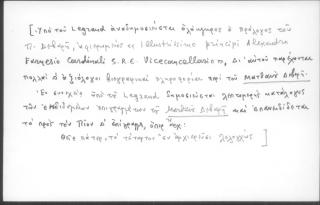 [. Ὑπὸ τοῦ Legrand ἀναδημοσιεύεται ὁλόκληρος ὁ πρόλογος τοῦ
Π. Δεβαρῆ, ἀφιερωμένος εἰς illustrissimo principi Alexandro
Farnesio Cardinali S.R.E. Vicecancellario, Δι' αὐτοῦ παρέχονται
πολλαὶ ἀξιόλογοι βιογραφικαὶ πληροφορίαι περὶ τοῦ Ματθαίου Δεβαρῆ.
Ἐν συνεχείᾳ ὑπὸ τοῦ Legrand δημοσιεύεται λεπτομερὴς κατάλογος
τῶν ἐπιγραμμάτων τοῦ Ματθαίου Δεβαρῆ καὶ ἐπαναδίδεται
τὸ πρὸς τὸν Πίον Δ' ἐπίγραμμα,
πάτερ, τὸ τέταρτον ἐν ἀρχιερεῦσι ]